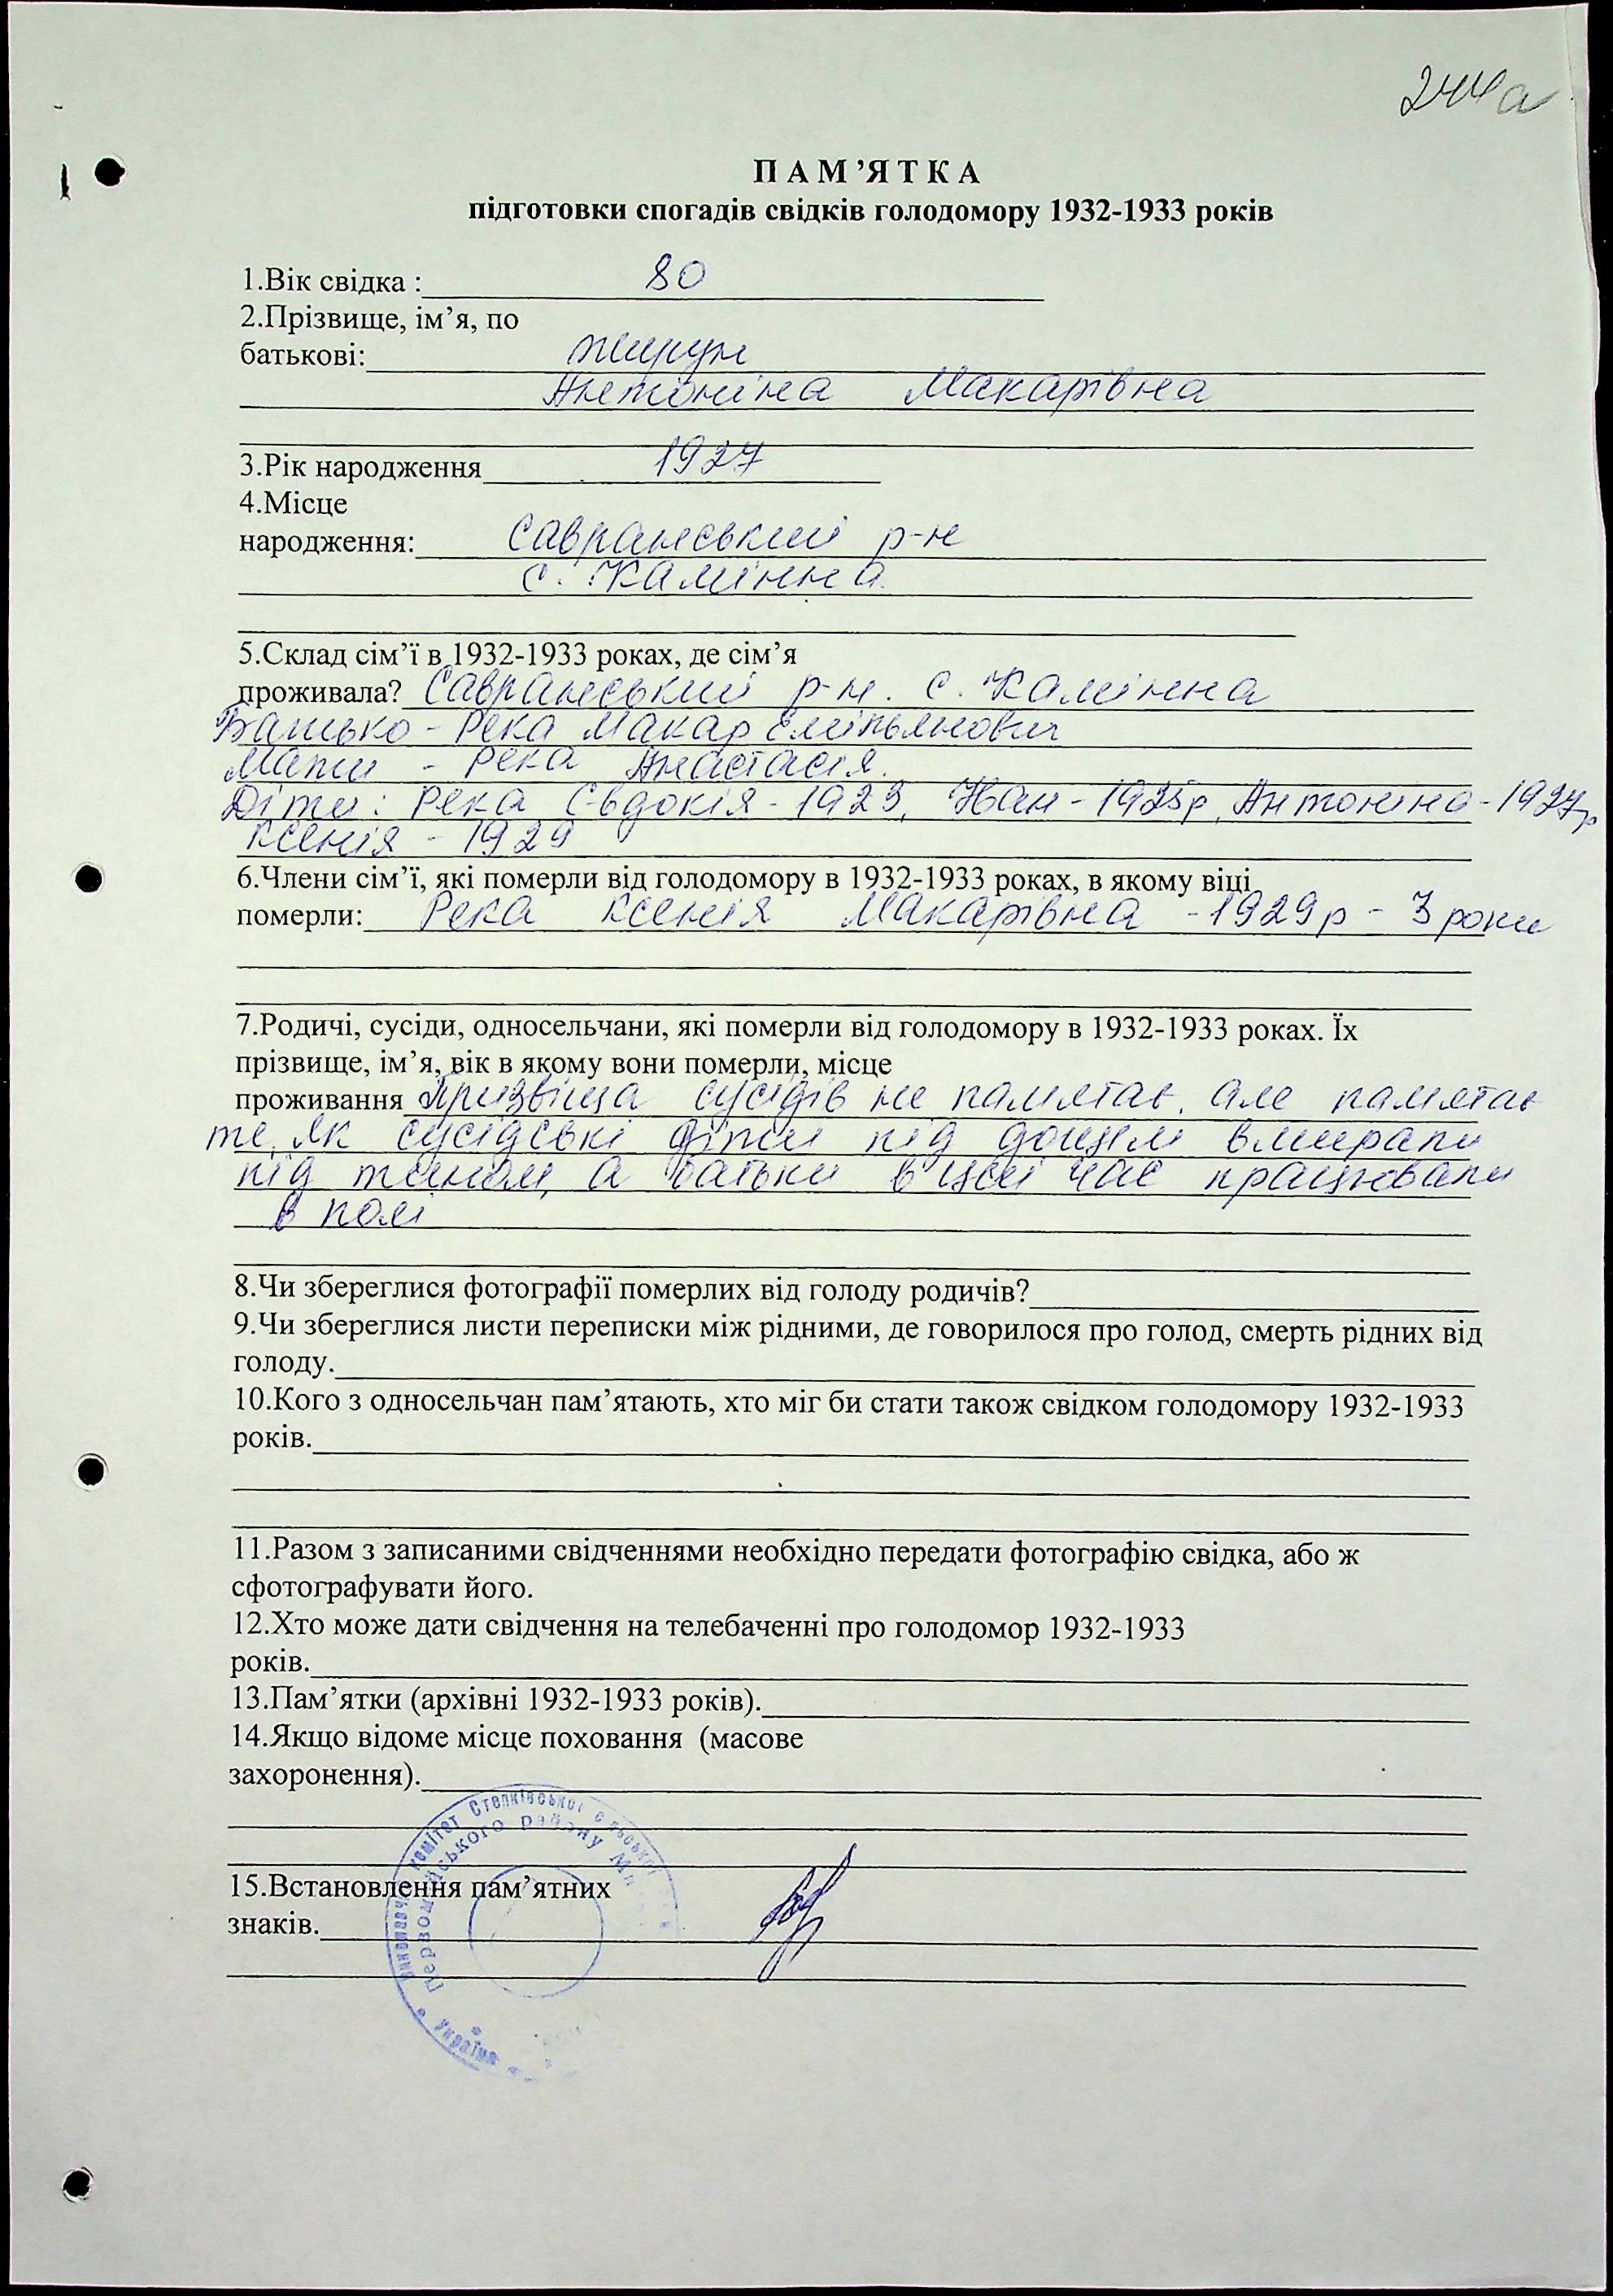 244а
ПАМ’ЯТКА
підготовки спогадів свідків голодомору 1932-1933 років
1.Вік свідка : 80
2.Прізвище, ім’я, по
батькові:
Антоніна Макарівна
3.Рік народження 1927
4.Місце
народження: Савранський р-н
с. Камінна
5.Склад сім’ї в 1932-1933 роках, де сім’я
проживала? Савранський р-н. с. Камінна
Батько - Река Макар Емільянович
Мати - Река Анастасія.
Діти: Река Євдокія - 1923, Іван - 1925р, Антоніна - 1927р
Ксенія - 1929
6.Члени сім’ї, які померли від голодомору в 1932-1933 роках, в якому віці
померли: Река Ксенія Макарівна - 1929р - 3 роки
7.Родичі, сусіди, односельчани, які померли від голодомору в 1932-1933 роках. Їх
прізвище, ім’я, вік в якому вони померли, місце
проживання Призвіща сусідів не памятає, але памятає
те, як сусідські діти під дощем вмирали
під тином, а батьки в цей час працювали
в полі
8.Чи збереглися фотографії померлих від голоду родичів?
9.Чи збереглися листи переписки між рідними, де говорилося про голод, смерть рідних від
голоду.
10.Кого з односельчан пам’ятають, хто міг би стати також свідком голодомору 1932-1933
років.
11.Разом з записаними свідченнями необхідно передати фотографію свідка, або ж
сфотографувати його.
12.Хто може дати свідчення на телебаченні про голодомор 1932-1933
років.
13.Пам’ятки (архівні 1932-1933 років).
14.Якщо відоме місце поховання (масове
захоронення).
15.Встановлення пам’ятних
знаків.
комітет Степківської сільської
Первомайського району
Україна